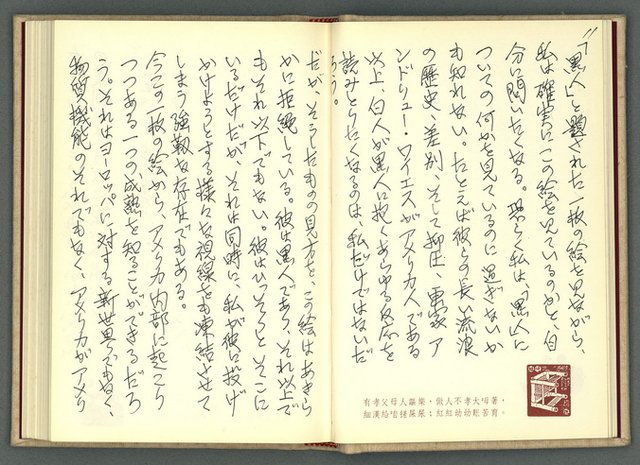 「「黒人」と題された一枚の絵を見ながら、
私は確実にこの絵を見ているのかと、自
分に問いたくなる。恐らく私は、「黒人」に
ついての何かを見ているのに過ぎないか
も知れない。たとえば彼らの長い流浪
の歴史、差別、そして抑圧、画家ア
ンドリュー・ワイエスがアメリカ人である
以上、白人が黒人に抱くあらゆる反応を
読みとりたくなるのは、私だけではないだ
ろう。
だが、そうしたものの見方を、この絵はあきら
かに拒絶している。彼は黒人であり、それ以上で
もそれ以下でもない。彼はひっそりとそこに
いるだけだが、それは同時に、私が彼に投げ
かけようとする様々な視線をも凍結させて
しまう強靱な存在でもある。
今この一枚の絵から、アメリカ内部に起こり
つつある一つの成熟を知ることができるだろ
う。それはヨーロッパに対する新世界でもなく
物質機能のそれでもなく、アメリカがアメリ
有孝父母人謳樂，做人不孝大毋著，
細漢給咱捾屎尿；紅紅幼幼賬苦育。